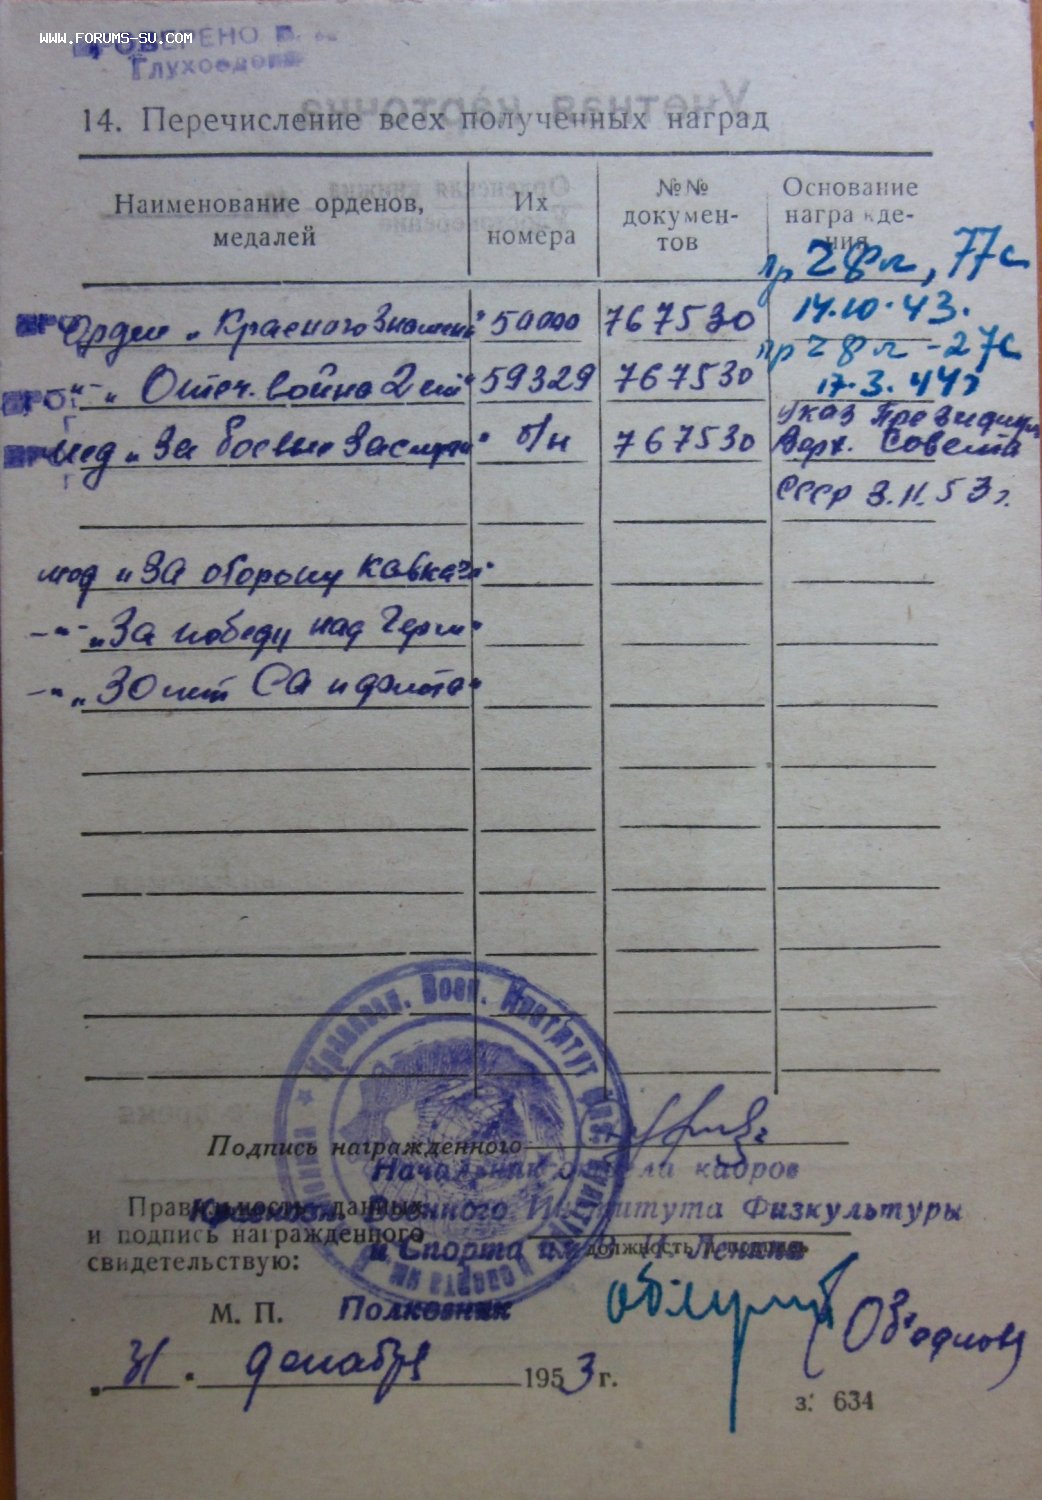 www.forums-su.com
14. Перечисление всех полученных наград
Наименование орденов, медалей
Их номера
№№ докумен-тов
Основание награжде-ния
пр 28 гл, 77с
Орден „Красного Знамени" 50000 767530 14.10.43.
-"- „Отеч. война 2 ст" 59329 767530 17.3.44г
мед „За боевые Заслуги" б/н 767530 Указ Президиума
Верх. Совета
СССР 3.11.53г.
мед „За оборону Кавказа"
-"- „За победу над Герм"
-"- „30 лет СА и флота"
Подпись награжденного
Начальник отдела кадров
Правильность данных
Краснозн. Военного Института Физкультуры
и подпись награжденного
и Спорта им В. И. Ленина
должность
свидетельствую:
М. П. Полковник
„31" декабря 1953 г.
з. 634